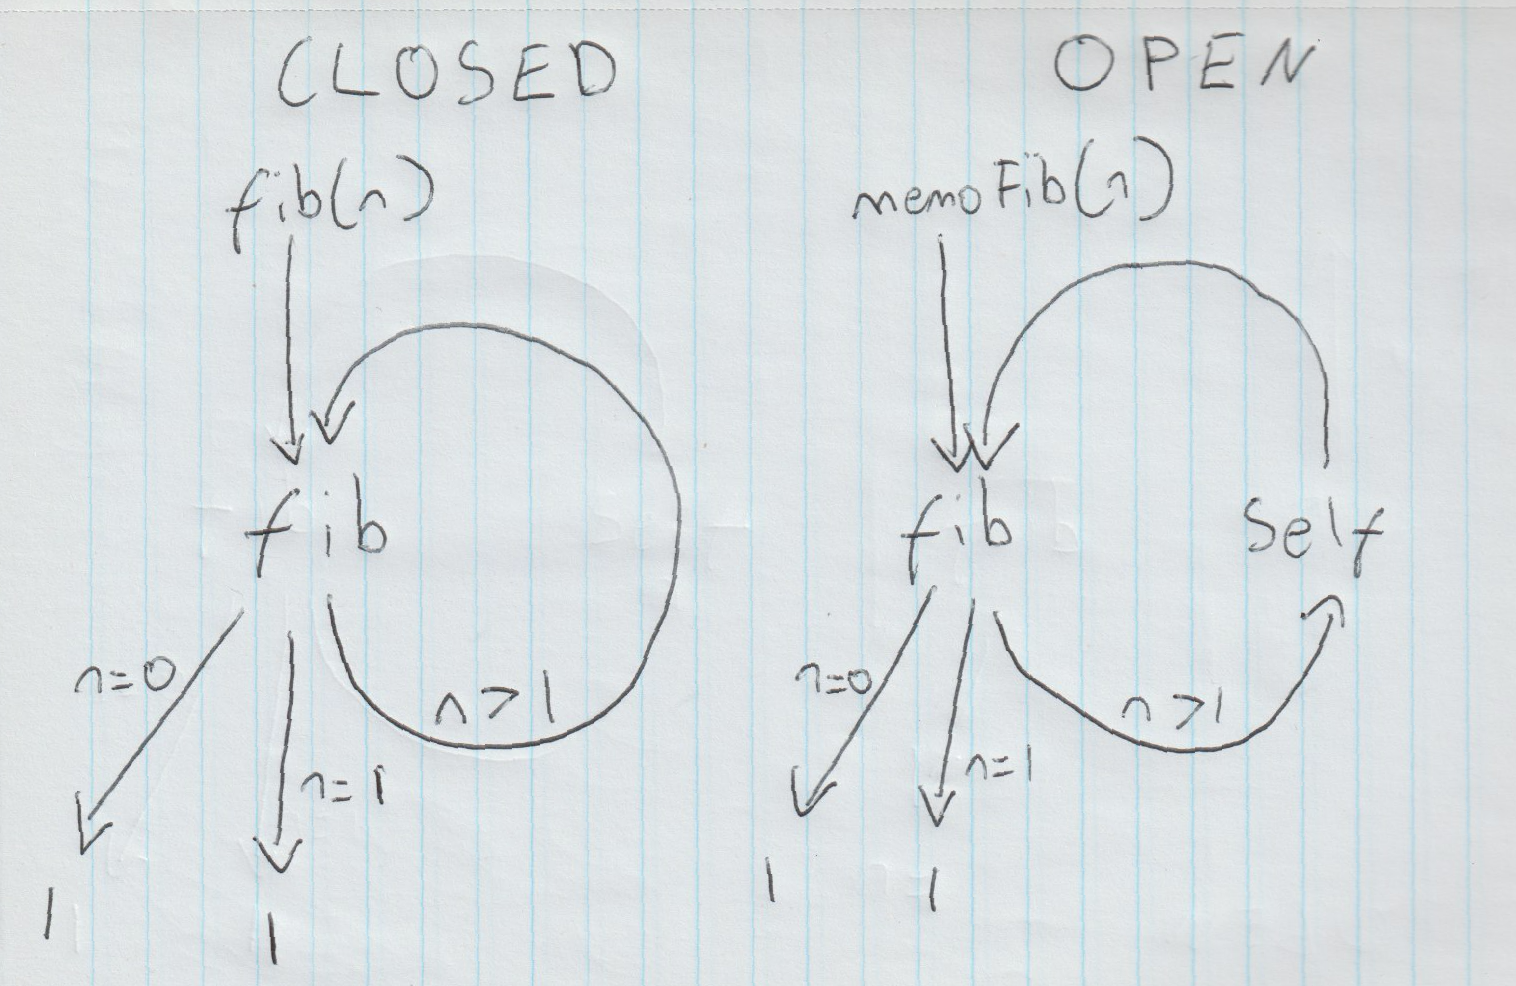 CLOSED
fib(n)
fib
n=0
n>1
n=1
1
1
OPEN
memoFib(n)
fib
Self
n=0
n>1
n=1
1
1